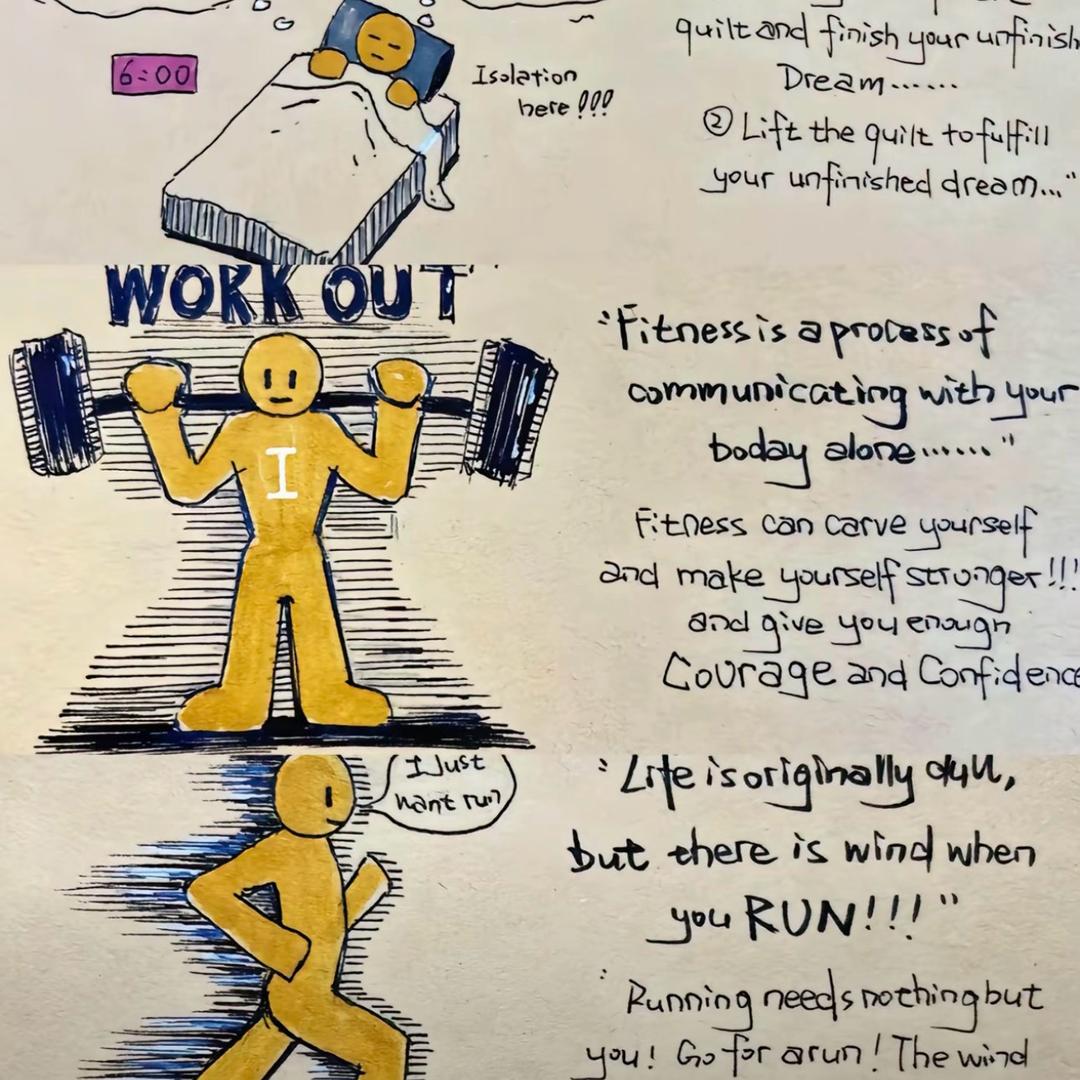 6:00
Isolation
here!!!
quilt and finish your unfinish
Dream......
② Lift the quilt to fulfill
your unfinished dream..."
WORK OUT
I
"Fitness is a process of
communicating with your
boday alone......"
Fitness can carve yourself
and make yourself stronger!!!
and give you enough
Courage and Confidence
I Just
want run
"Life is originally dull,
but there is wind when
you RUN!!!"
Running needs nothing but
you! Go for a run! The wind